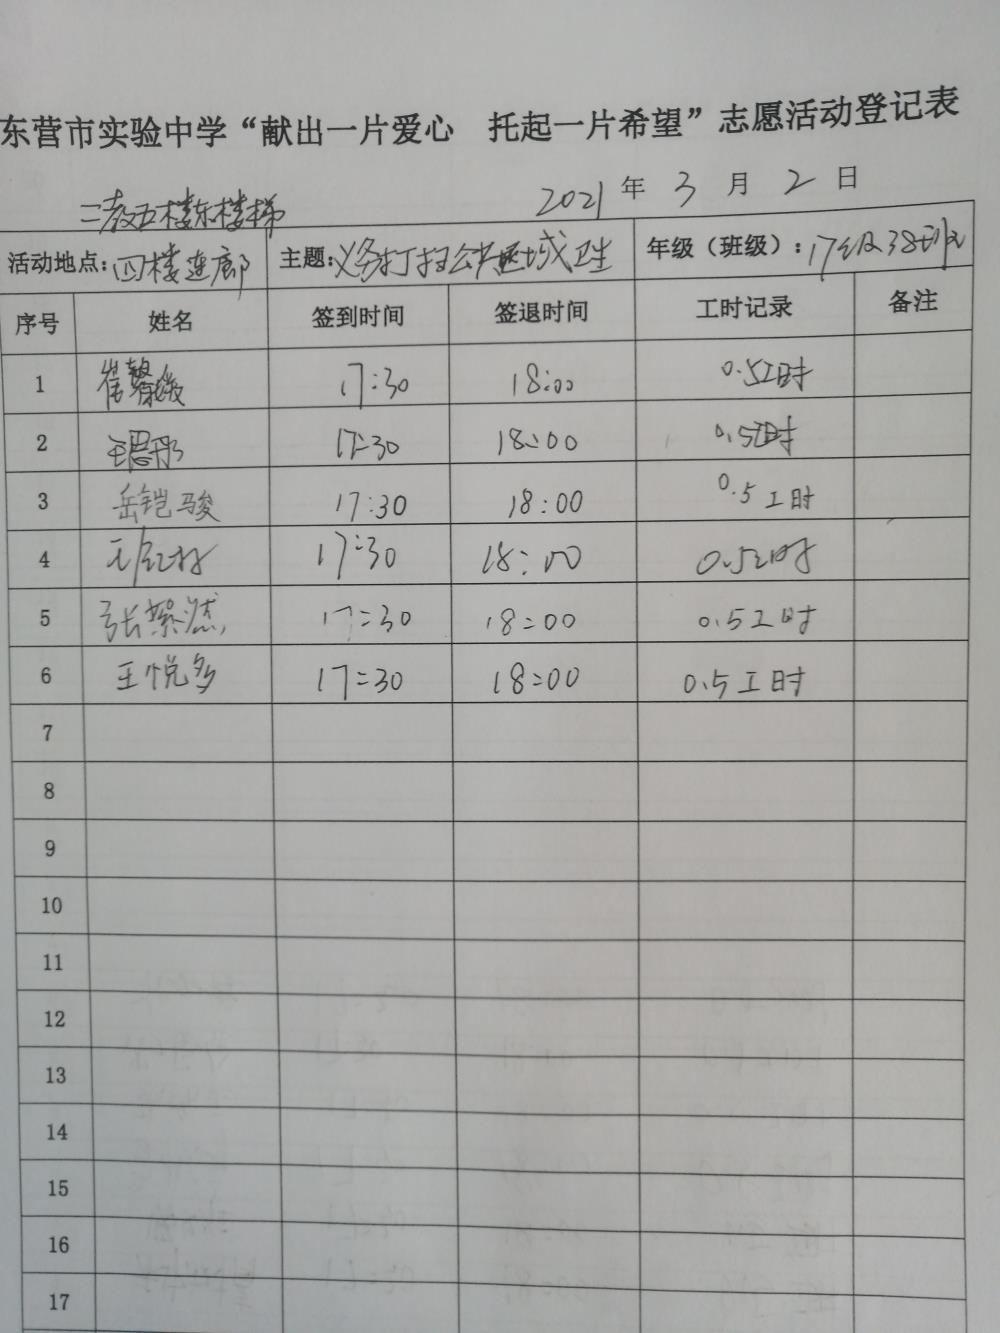 东营市实验中学“献出一片爱心 托起一片希望”志愿活动登记表
2021 年 3 月 2 日
二教五楼东楼梯
活动地点：四楼连廊 主题：义务打扫公共区域卫生 年级（班级）：17级38班
序号 姓名 签到时间 签退时间 工时记录 备注
1 崔馨 17:30 18:00 0.5工时
2 王思彤 17:30 18:00 0.5工时
3 岳铠骏 17:30 18:00 0.5工时
4 17:30 18:00 0.5工时
5 张 17:30 18:00 0.5工时
6 王悦多 17:30 18:00 0.5工时
7
8
9
10
11
12
13
14
15
16
17